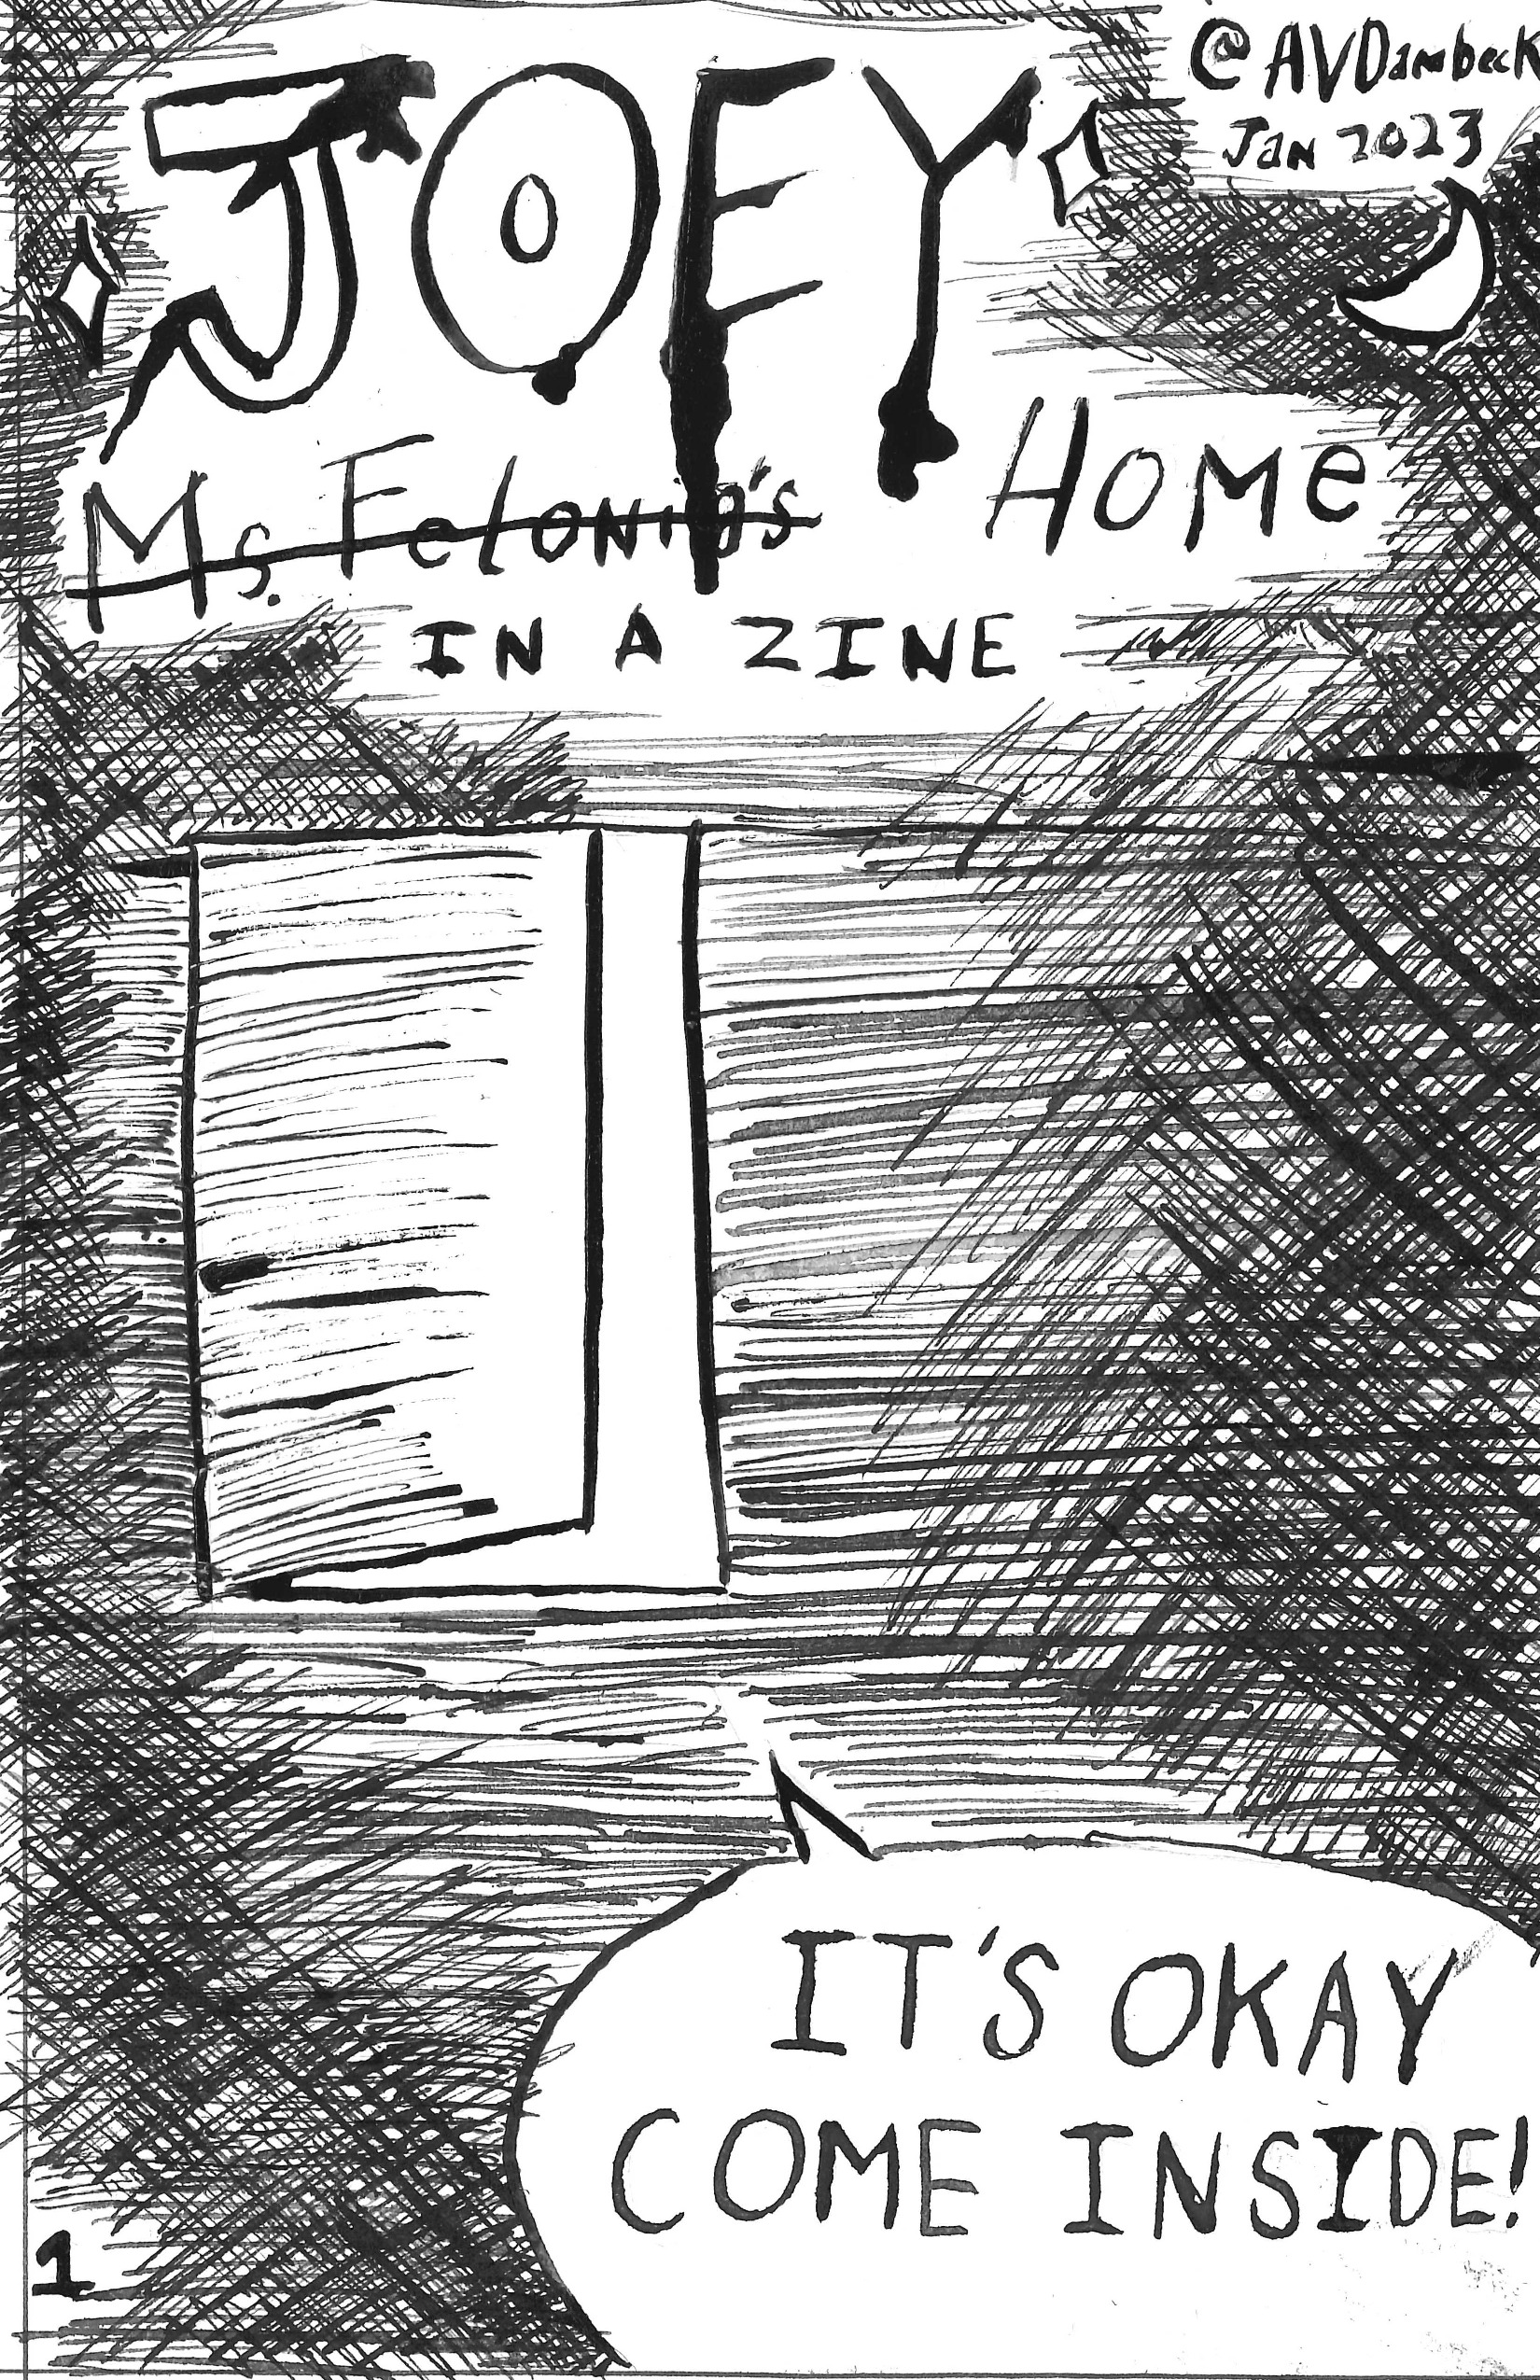 @AVDambeck
Jan 2023
JOEY
Ms. Felonie's HOMe
IN A ZINE
IT'S OKAY
COME INSIDE!
1